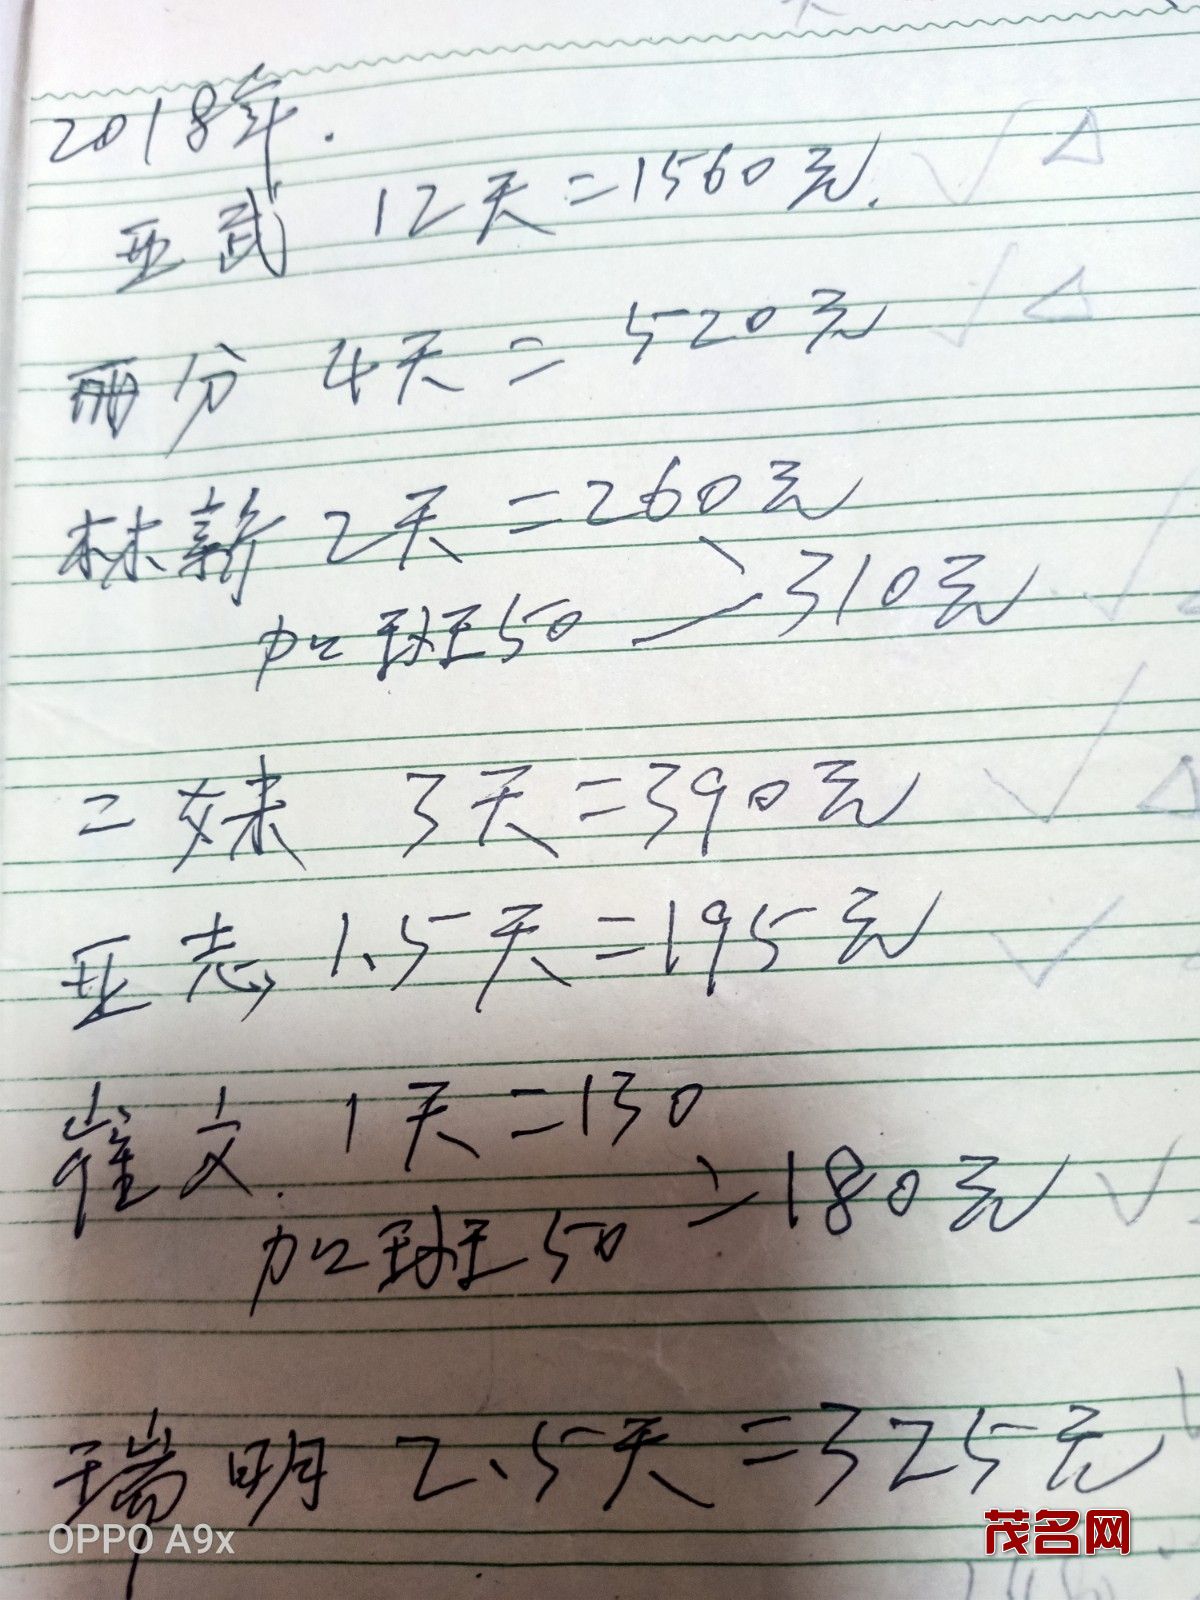 2018年.
亚武 12天=1560元.
丽分 4天=520元
林薪 2天=260元
加班50 >310元
二妹 3天=390元
亚志 1.5天=195元
崔文. 1天=130
加班50 >180元
瑞明 2.5天=325元
OPPO A9x
茂名网